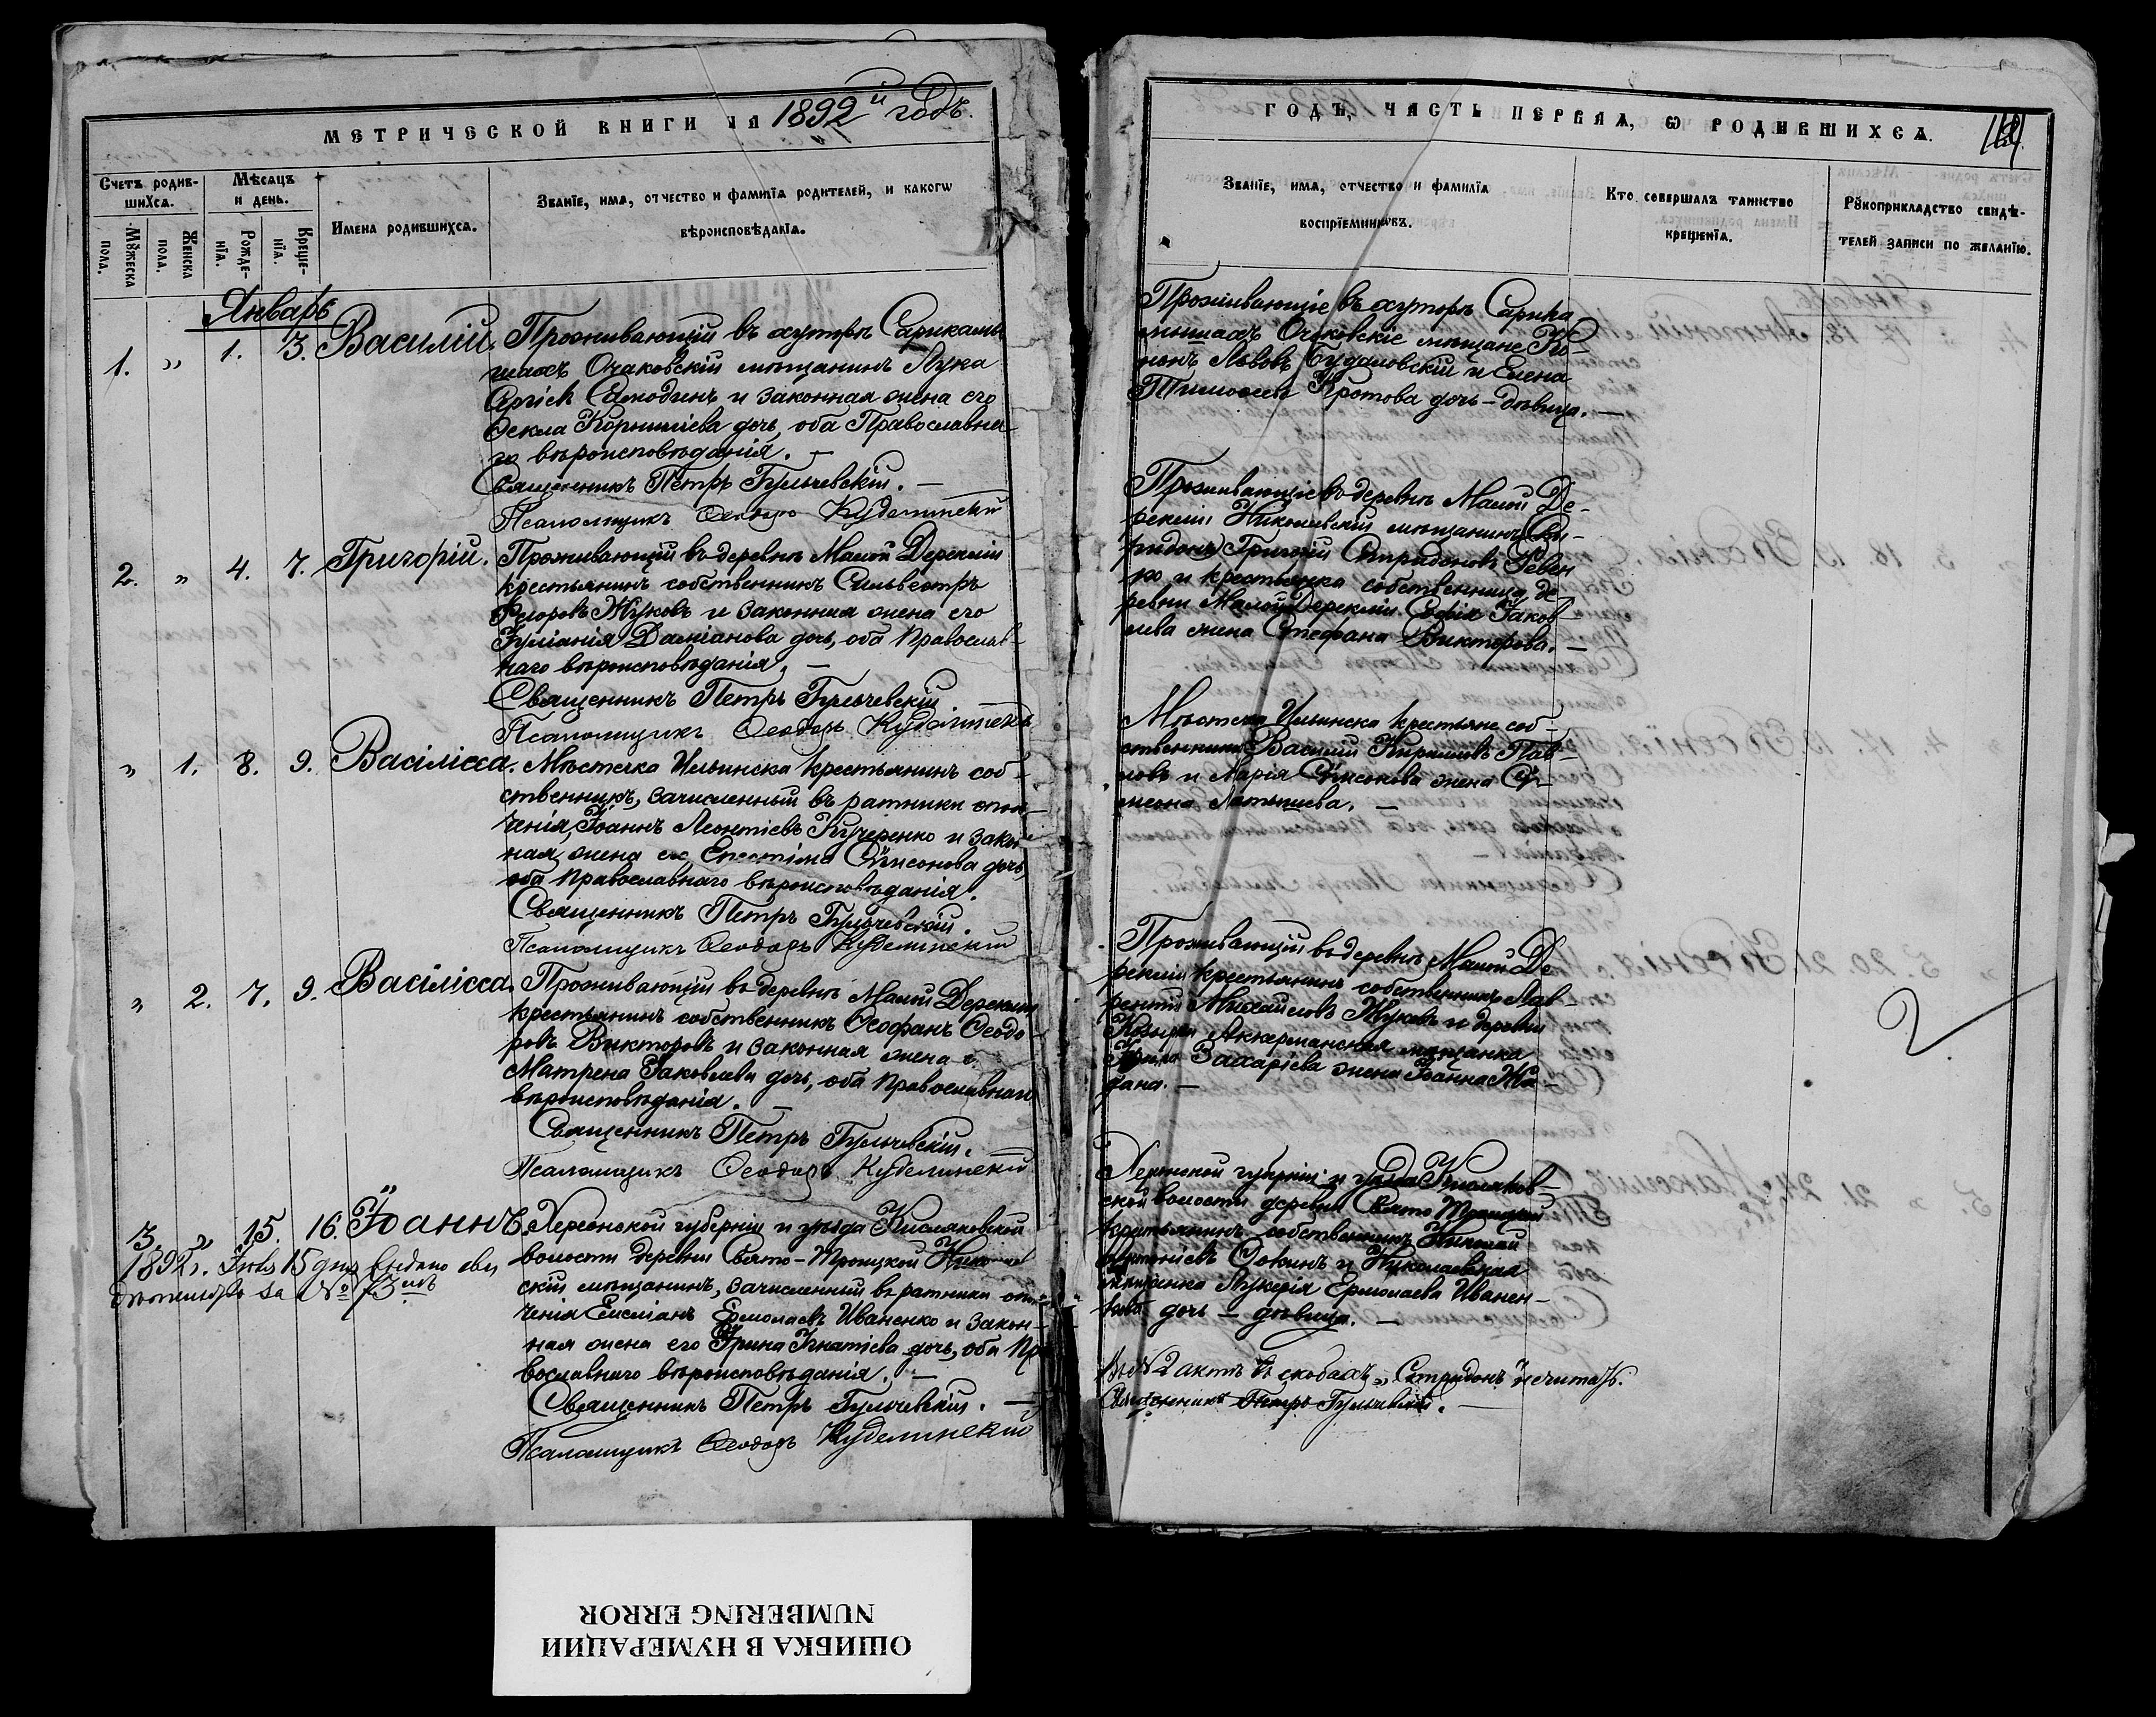 МЕТРИЧЕСКОЙ КНИГИ НА 1892й годъ.
Счетъ родив-
шихся.
Мѣсяцъ
и день.
Мꙋжеска
пола.
Женска
пола.
Рожде-
нїя.
Креще-
нїя.
Имена родившихся.
Званїе, имя, отчество и фамилїя родителей, и какогѡ
вѣроисповѣданїя.
Январь
1. " 1. 3. Василій.
Проживающій въ хуторѣ Сарикамы-
шахъ Очаковскій мѣщанинъ Лука
Самодинъ и законная жена его
Ѳекла Корниліева дочь, оба Православна-
го вѣроисповѣданія. —
Священникъ Петръ Гульчевскій. —
Псаломщикъ Ѳеодоръ Куделинскій
2. " 4. 7. Григорій.
Проживающій въ деревнѣ Малой Дереклій
крестьянинъ собственникъ Сильвестръ
Жуковъ и законная жена его
Іуліанія Даміанова дочь, оба Православ-
наго вѣроисповѣданія. —
Священникъ Петръ Гульчевскій.
Псаломщикъ Ѳеодоръ Куделинскій
" 1. 8. 9. Васілісса.
Мѣстечка Ильинска крестьянинъ соб-
ственникъ, зачисленный въ ратники опол-
ченія, Іоаннъ Леонтіевъ Кучеренко и закон-
ная жена его дочь,
оба Православнаго вѣроисповѣданія.
Священникъ Петръ Гульчевскій.
Псаломщикъ Ѳеодоръ Куделинскій
" 2. 7. 9. Васілісса.
Проживающій въ деревнѣ Малой Дереклій
крестьянинъ собственникъ Ѳеофанъ Ѳеодо-
ровъ Викторовъ и законная жена
Матрена Іаковлева дочь, оба Православнаго
вѣроисповѣданія. —
Священникъ Петръ Гульчевскій.
Псаломщикъ Ѳеодоръ Куделинскій
3. " 15. 16. Іоаннъ.
1892 г. Іюля 15 дня выдано сви
дѣтельство за № 73мъ
Херсонской губерніи и уѣзда Кисляковской
волости деревни Свято-Троицкой
скій мѣщанинъ, зачисленный въ ратники опол-
ченія Емеліанъ Ермолаевъ Иваненко и закон-
ная жена его Ірина Игнатіева дочь, оба Пра-
вославнаго вѣроисповѣданія. —
Священникъ Петръ Гульчевскій. —
Псаломщикъ Ѳеодоръ Куделинскій
ГОДЪ, ЧАСТЬ ПЕРВАЯ, Ѡ РОДИВШИХСЯ.
Званїе, имя, отчество и фамилїя
воспрїемникѡвъ.
Кто совершалъ таинство
крещенїя.
Рꙋкоприкладство свидѣ-
телей записи по желанїю.
Проживающіе въ хуторѣ Сарика-
мышахъ Очаковскіе мѣщане
Львовъ Будаловскій и Елена
Тимоѳеева Кротова дочь – дѣвица. —
Проживающіе въ деревнѣ Малой Де-
реклій Николаевскій мѣщанинъ (Спи-
ридонъ) Григорій Спиридоновъ
и крестьянка собственница де-
ревни Малой Дереклій Софія Іаков-
лева жена Стефана Викторова. —
Мѣстечка Ильинска крестьяне соб-
ственники Василій Кириловъ Пав-
ловъ и Марія жена
Латышева. —
Проживающій въ деревнѣ Малой Де-
реклій крестьянинъ собственникъ Лав-
рентій Михайловъ Жуковъ и деревни
Аккерманская мѣщанка
Захаріева жена Іоанна Жда-
дана. —
Херсонской губерніи и уѣзда Кисляков-
ской волости деревни Свято Троицкой
крестьянинъ собственникъ Николай
и Николаевская
мѣщанка Лукерія Ермолаева Иванен-
кова дочь – дѣвица. —
Въ № 2 актѣ въ скобахъ „Спиридонъ“ не читать.
Священникъ Петръ Гульчевскій. —
2
ОШИБКА В НУМЕРАЦИИ
NUMBERING ERROR